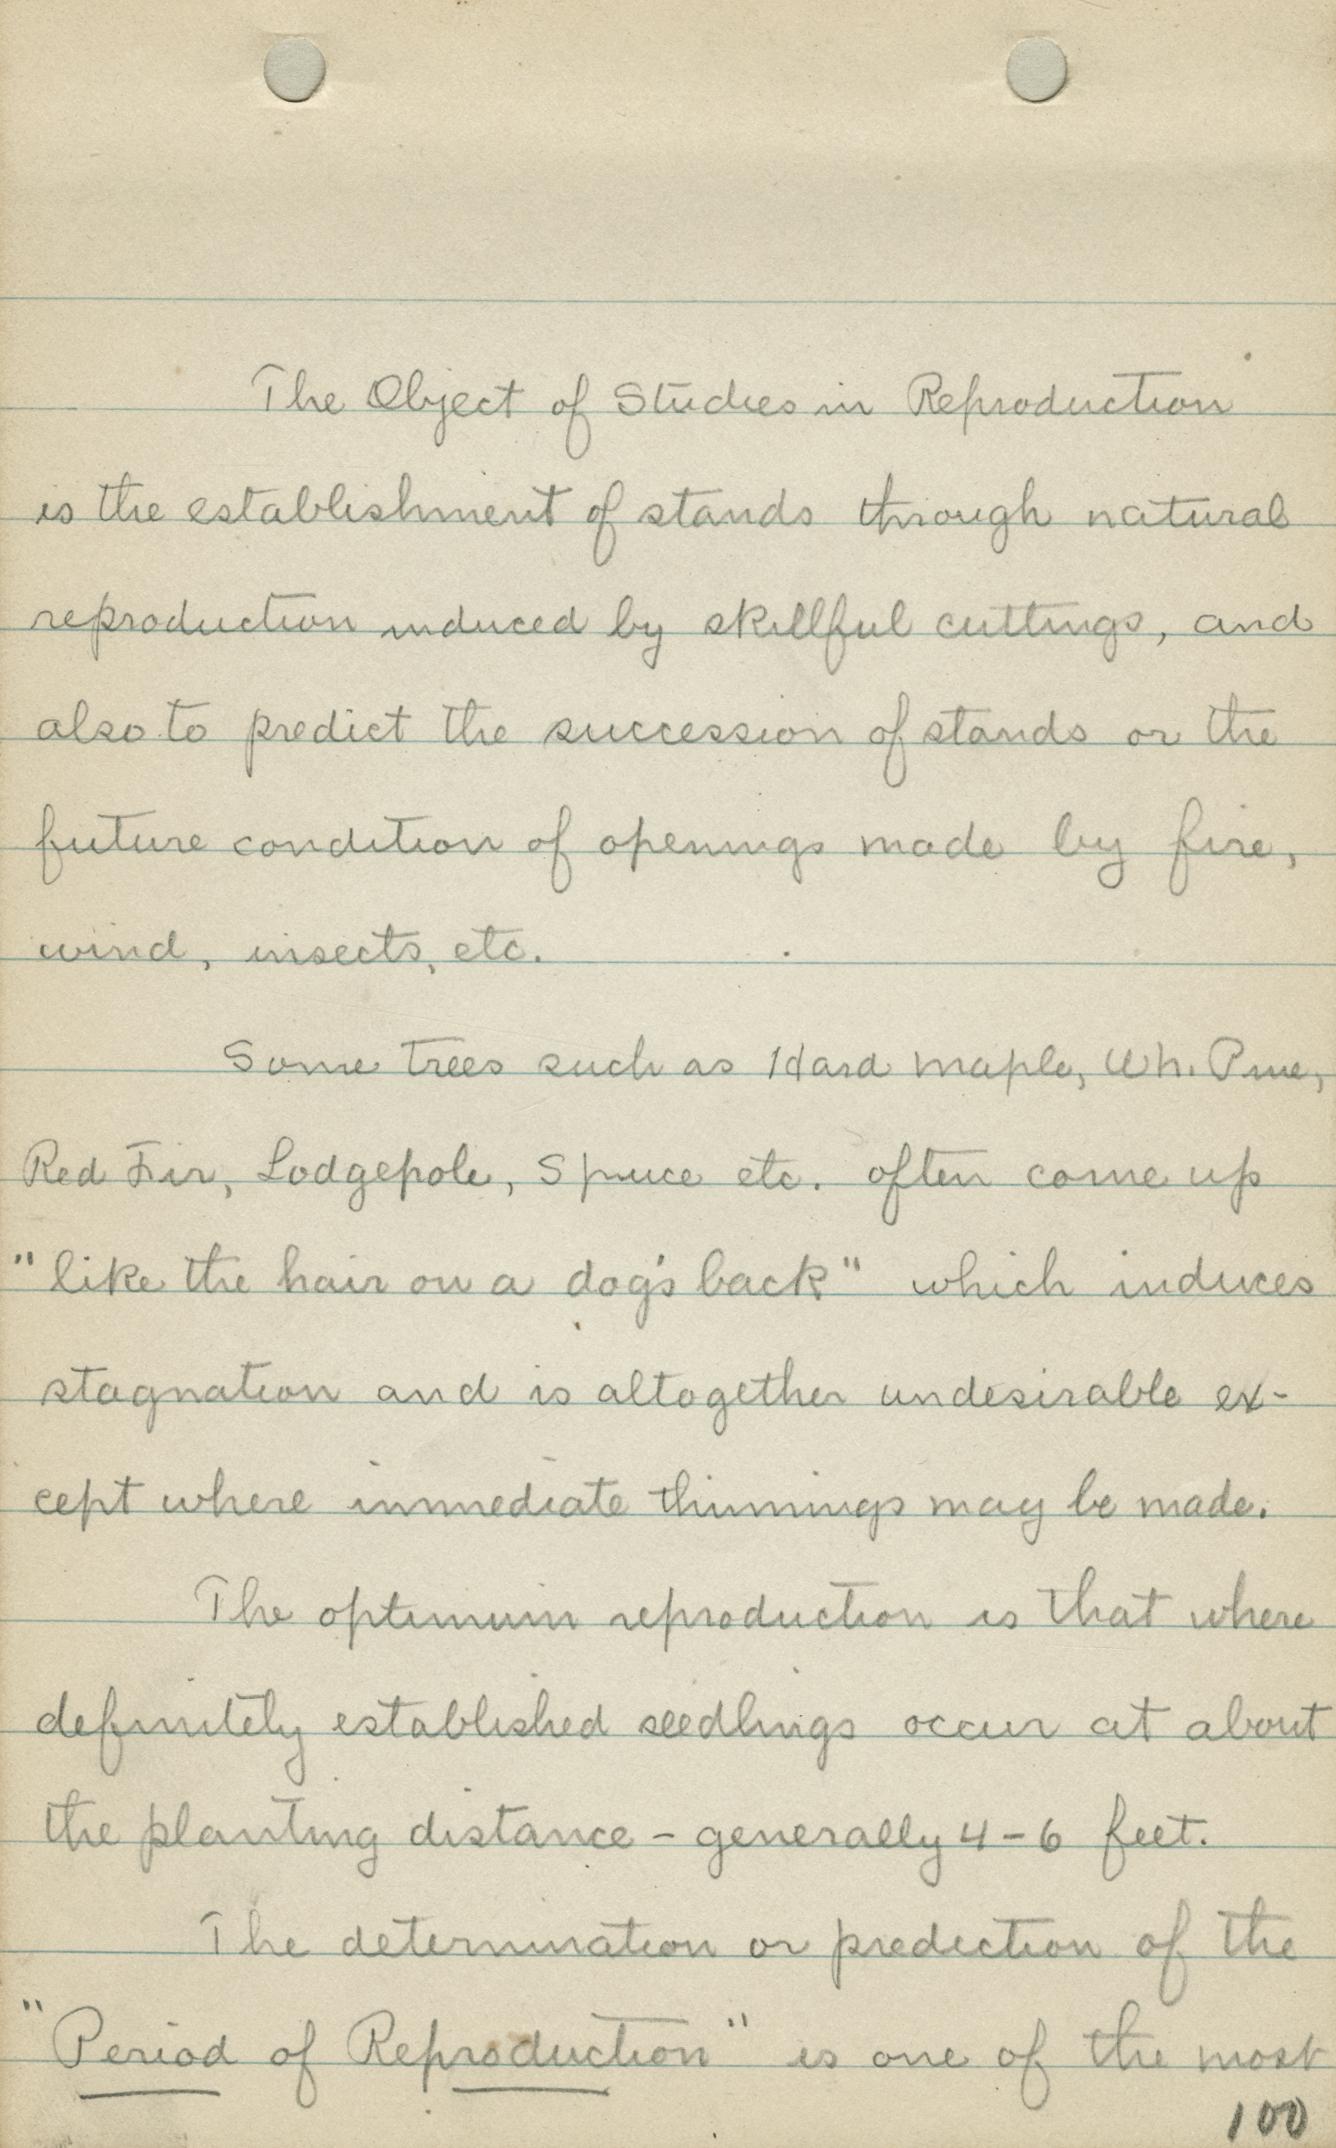 The Object of Studies in Reproduction
is the establishment of stands through natural
reproduction induced by skillful cuttings, and
also to predict the succession of stands or the
future condition of openings made by fire,
wind, insects, etc.
Some trees such as Hard Maple, Wh. Pine,
Red Fir, Lodgepole, Spruce etc. often come up
"like the hair on a dog's back" which induces
stagnation and is altogether undesirable ex-
cept where immediate thinnings may be made.
The optimum reproduction is that where
definitely established seedlings occur at about
the planting distance - generally 4-6 feet.
The determination or prediction of the
"Period of Reproduction" is one of the most
100